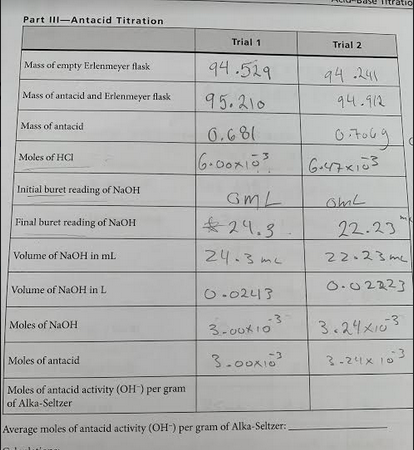 Acid-Base Titratio
Part III—Antacid Titration
Trial 1 Trial 2
Mass of empty Erlenmeyer flask 94.529 94.241
Mass of antacid and Erlenmeyer flask 95.210 94.912
Mass of antacid 0.681 0.706g
Moles of HCl 6.00x10⁻³ 6.47x10⁻³
Initial buret reading of NaOH 0mL 0mL
Final buret reading of NaOH 24.3 22.23
Volume of NaOH in mL 24.3 mL 22.23 mL
Volume of NaOH in L 0.0243 0.02223
Moles of NaOH 3.00x10⁻³ 3.24x10⁻³
Moles of antacid 3.00x10⁻³ 3.24x10⁻³
Moles of antacid activity (OH⁻) per gram
of Alka-Seltzer
Average moles of antacid activity (OH⁻) per gram of Alka-Seltzer: